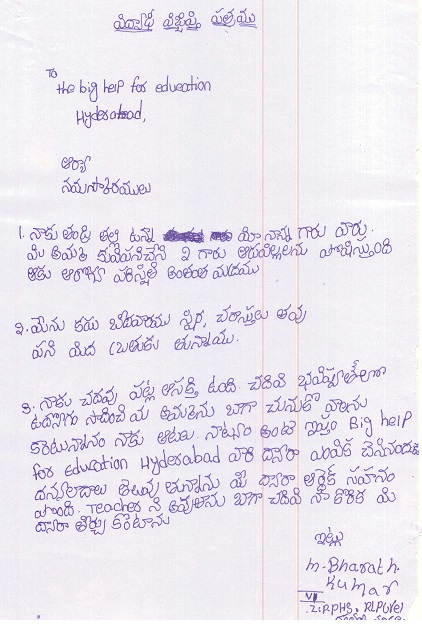 విద్యార్థి విజ్ఞప్తి పత్రము
To
the big help for education
Hyderabad,
ఆర్యా
నమస్కారములు
1. నాకు తండ్రి తల్లి ఉన్నా మా నాన్న గారు వారు.
మా అమ్మ కూలిపనిచేసి 2 గారు ఆడపిల్లలను పోషిస్తుంది
ఆమె ఆరోగ్య పరిస్థితి అంతంత మాత్రము
2. మేము కడు బీదవారము స్థిర, చరాస్తులు లేవు
పని మీద బ్రతుకు తున్నాము.
3. నాకు చదువు పట్ల ఆసక్తి ఉంది. చదివి భవిష్యత్తులో
ఉద్యోగం సాధించి మా అమ్మను బాగా చూసుకో వాలను
కుంటున్నాను నాకు ఆటలు. నాట్యం అంటె ఇష్టం Big help
for education Hyderabad వారి ద్వారా ఎంపిక చేసినందుకు
ధన్యవాదాలు తెలుపు తున్నాను మీ ద్వారా ఆర్థిక సహాయం
పొంది. Teacher ని అవుతాను బాగా చదివి నా కోరిక మీ
ద్వారా తీర్చు కుంటాను
ఇట్లు
M. Bharath.
Kumar
VI
Z.P.P.H.S.